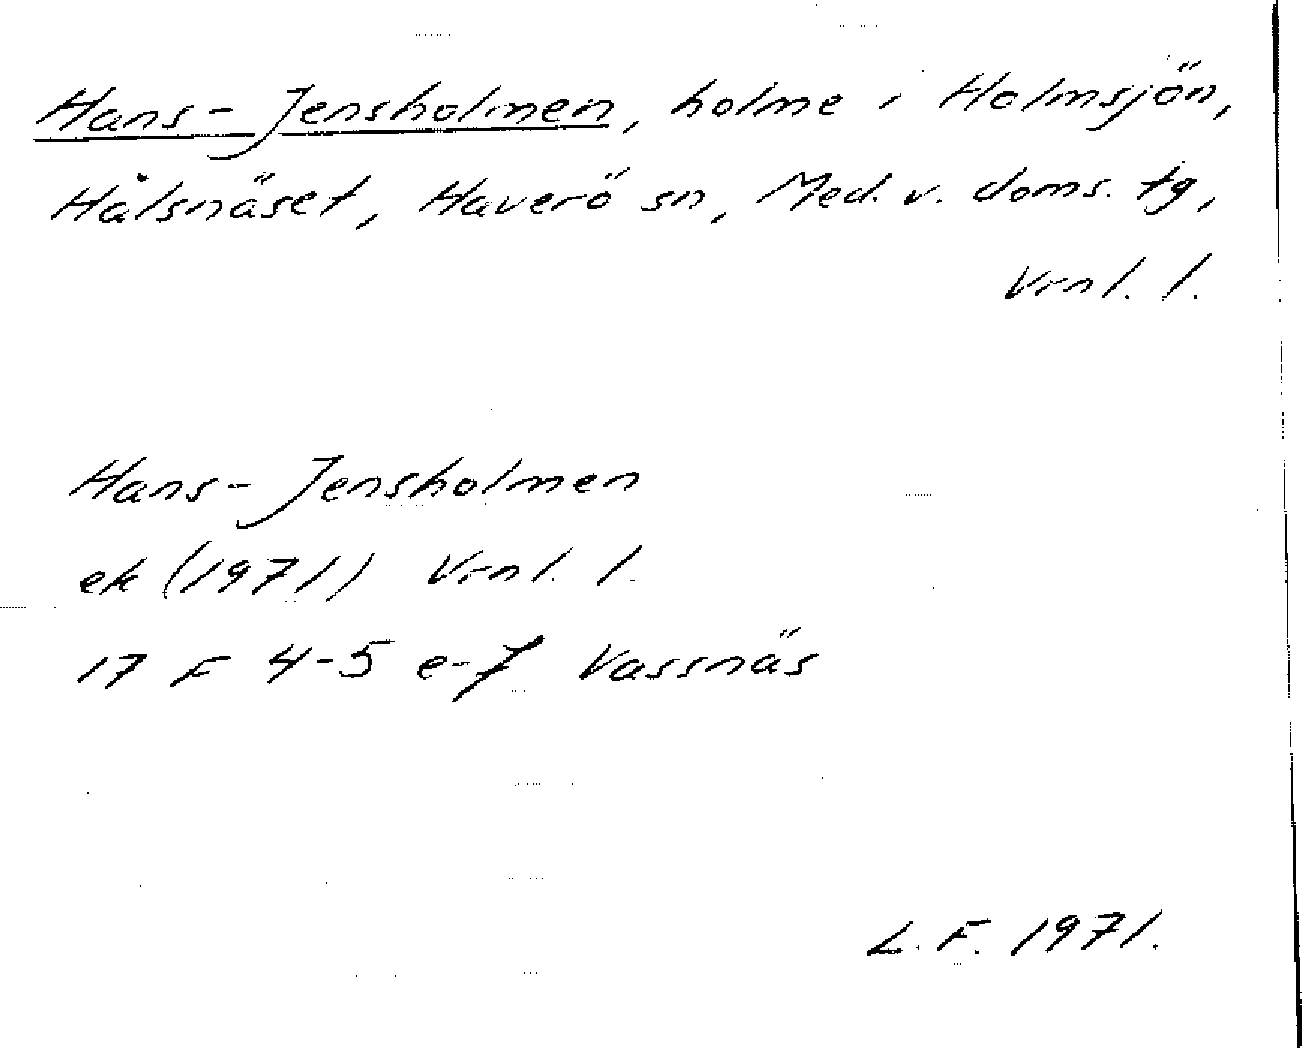 Hans-Jensholmen, holme i Holmsjön,
Hålsnäset, Haverö sn, Med. v. doms. tg,
Vrnl. l.
Hans-Jensholmen
ek (1971) Vrnl. l.
17 F 4-5 e-f Vassnäs
L. F. 1971.